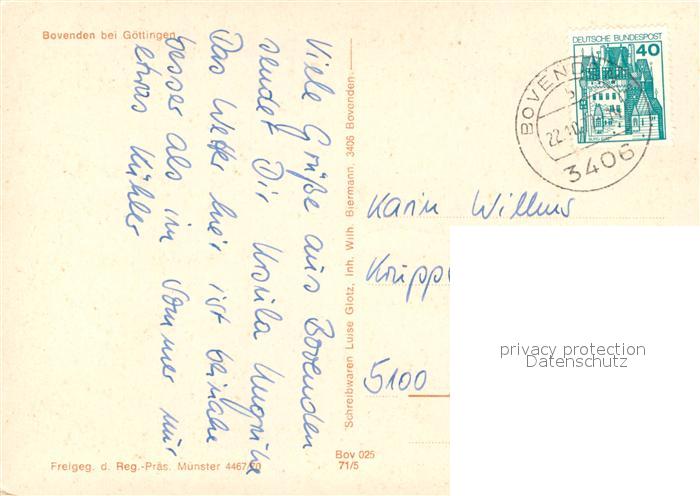 Bovenden bei Göttingen
Viele Grüße aus Bovenden
sendet Dir Ursula
Das Wetter hier ist beinahe
besser als im Sommer nur
etwas kühler
Freigeg. d. Reg.-Präs. Münster 4467/70
Schreibwaren Luise Glotz, Inh. Wilh. Biermann, 3406 Bovenden
Bov 025
71/5
DEUTSCHE BUNDESPOST
40
BOVENDEN
3406
Karin Willms
Krupp
5100
privacy protection
Datenschutz